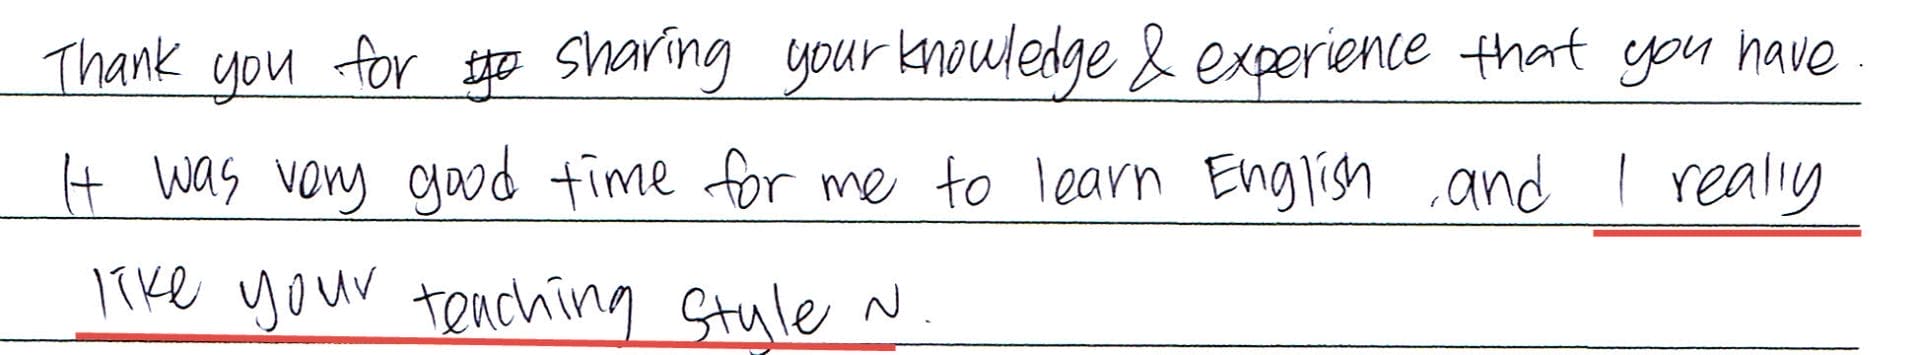 Thank you for sharing your knowledge & experience that you have.
It was very good time for me to learn English, and I really
like your teaching style ~.